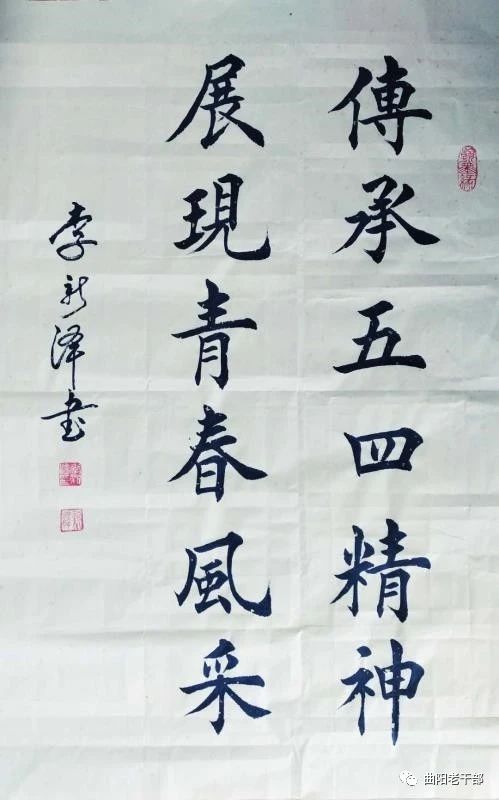 傳承五四精神
展現青春風采
李新泽书
曲阳老干部